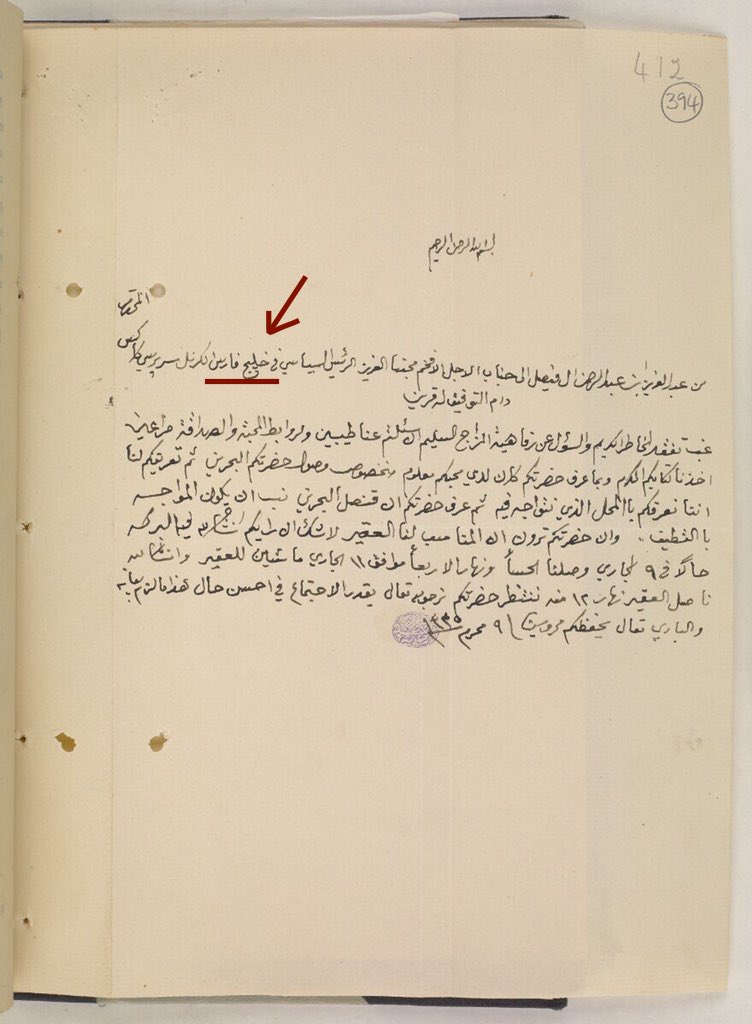 412
394
بسم الله الرحمن الرحيم
من عبد العزيز بن عبد الرحمن ال فيصل الى جناب الاجل الافخم محبنا العزيز الرئيس السياسي في خليج فارس الكرنل سر برسي كاكس المحترم
دام التوفيق له قرين
غب تفقد الخاطر الكريم والسؤل عن رفاهية المزاج السليم ان سئلتم عنا طيبين ولروابط المحبة والصداقة مراعين
اخذنا كتابكم المكرم وبما عرف حضرتكم كان لدى محبكم معلوم مخصوص وصول حضرتكم البحرين ثم تعريفكم لنا
اننا نعرفكم بالمحل الذي نتواجه فيه ثم عرف حضرتكم ان قنصل البحرين نسب ان يكون المواجهه
بالقطيف وان حضرتكم ترون ان المناسب لنا العقير لاشك ان رايكم انشالله فيه البركه
حالاً في ٩ الجاري وصلنا الحسأ ونهار الاربعأ موافق ١١ الجاري ماشيين للعقير وانشالله
ناصل العقير نهار ١٢ منه ننتظر حضرتكم نرجو الله تعالى يقدر الاجتماع في احسن حال هذا مالزم بيانه
والباري تعالى يحفظكم محروسين ٩ محرم ١٣٣٥